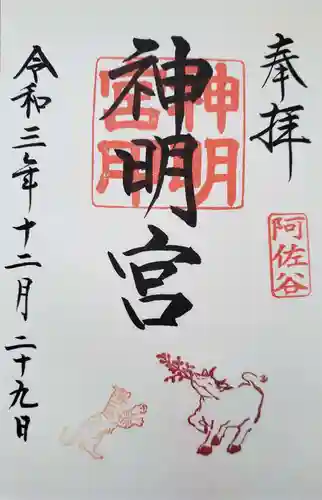 奉拝
阿佐谷
神明宮
神明
宮用
令和三年十二月二十九日